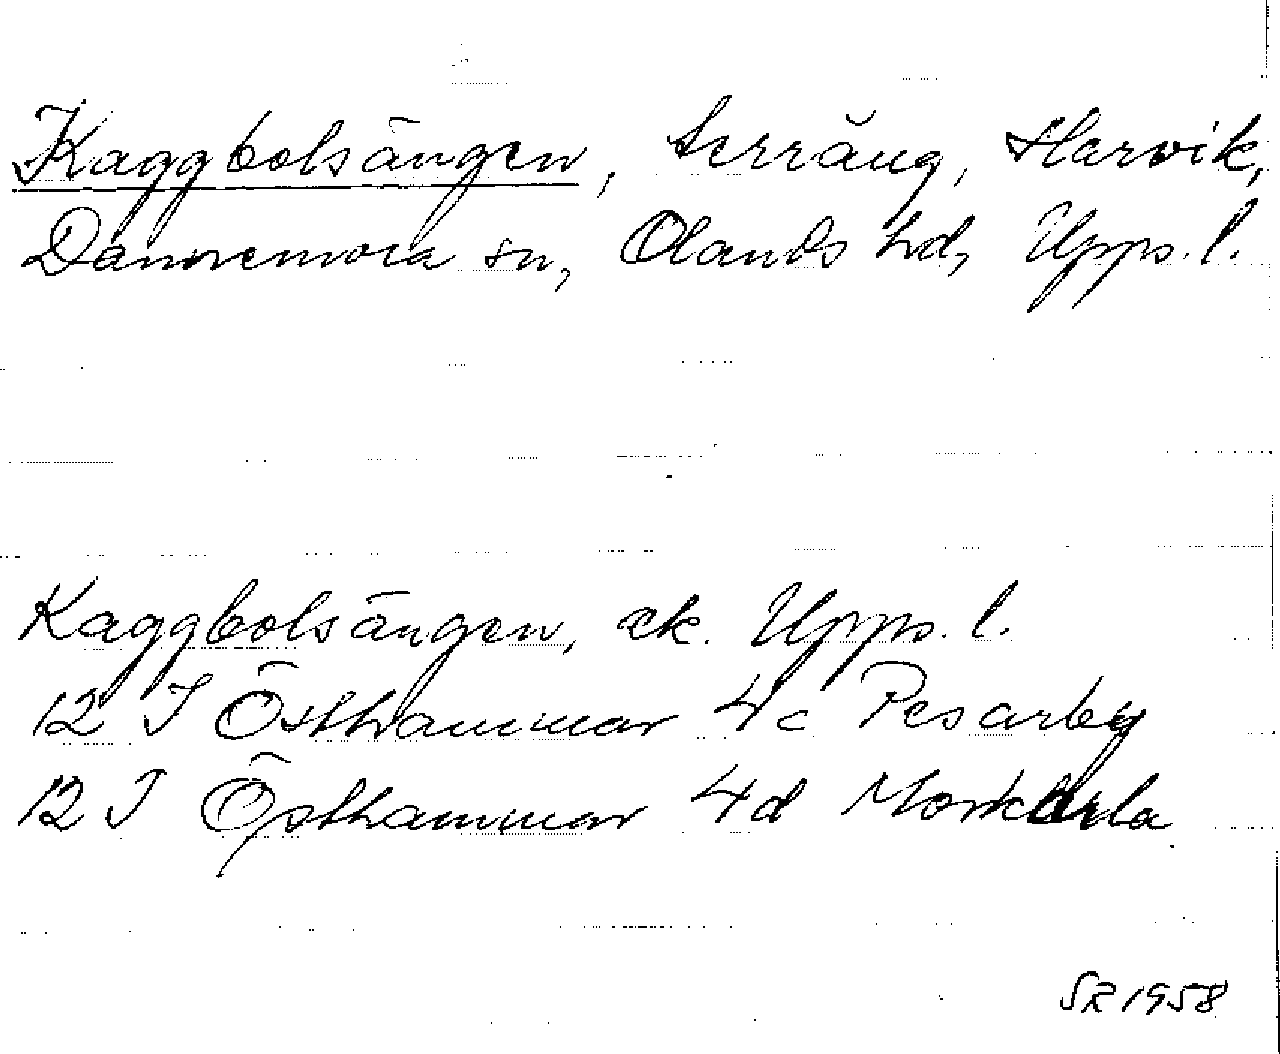 Kaggbolsängen, terräng, Harvik,
Dannemora sn, Olands hd, Upps. l.
Kaggbolsängen, ek. Upps. l.
12 I Östhammar 4c Pesarby
12 I Östhammar 4d Morkarla
SR 1958